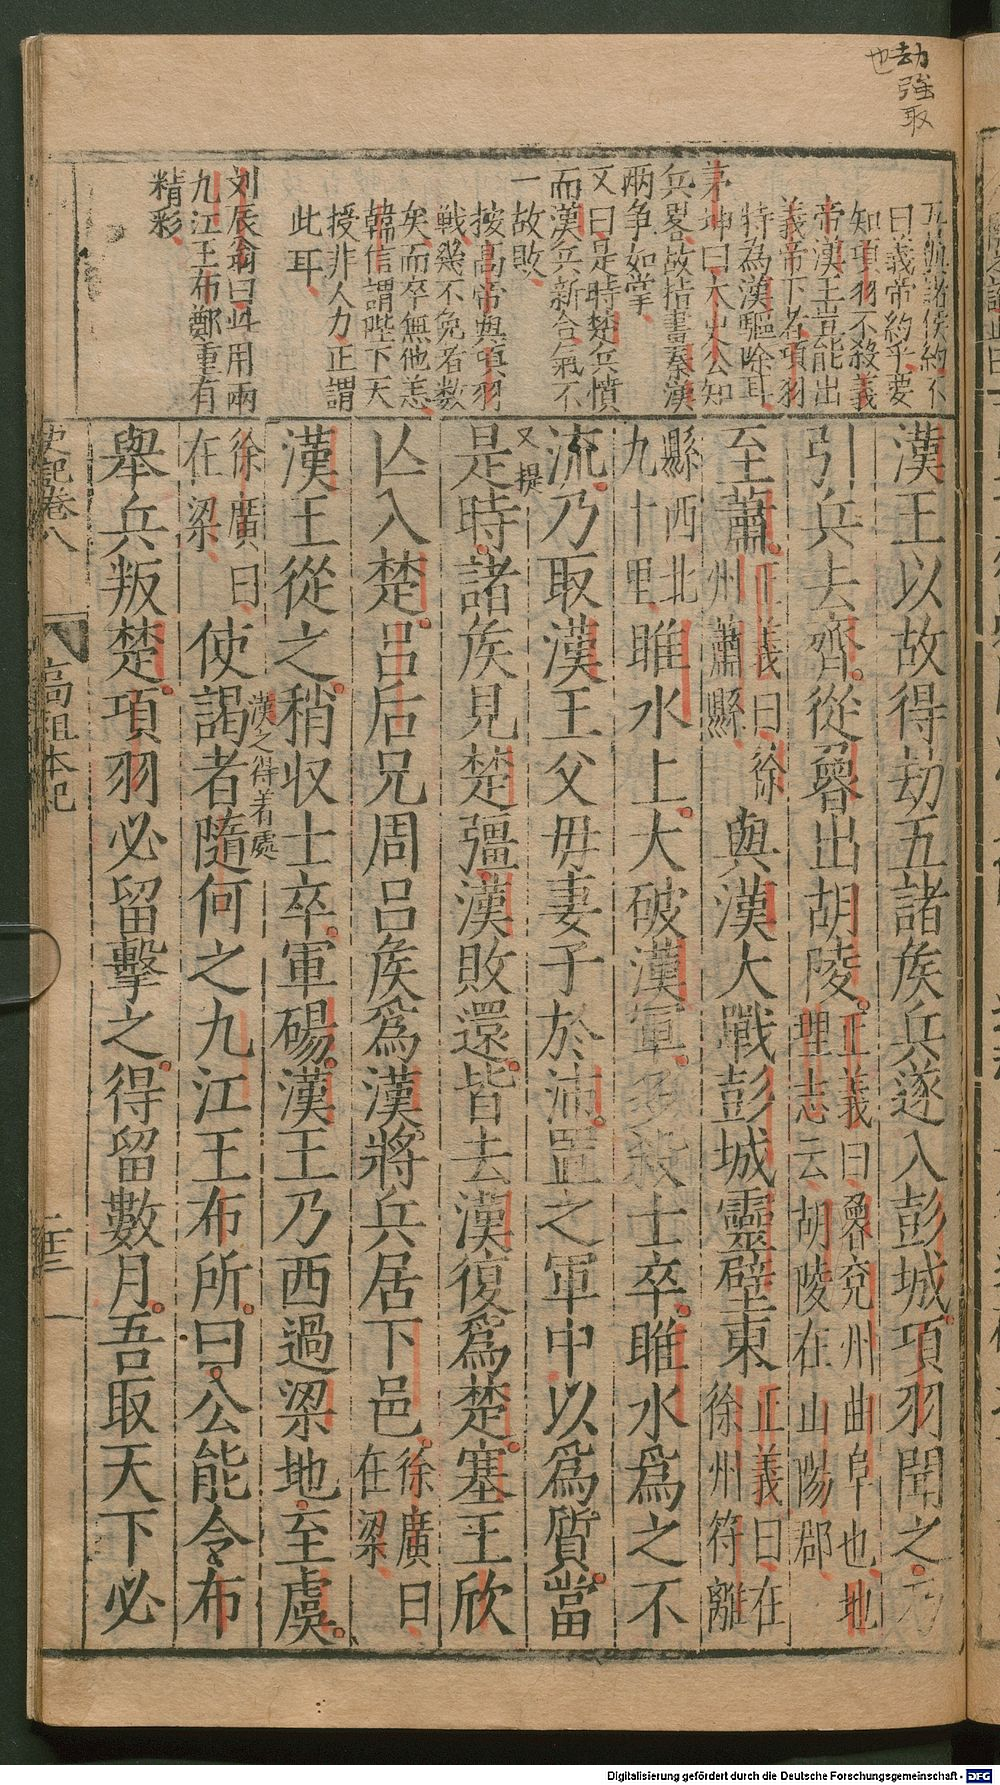 劫強取
也
互註諸侯約不
曰義帝約乎要
知項羽不殺義
帝漢王豈能出
義帝下者項羽
特為漢驅除耳
茅坤曰太史公知
兵畧故拮畫秦漢
兩爭如掌
又曰是時楚兵憤
而漢兵新合氣不
一故敗
按高帝與項羽
戰幾不免者數
矣而卒無他恙
韓信謂陛下天
授非人力正謂
此耳
刘辰翁曰此用兩
九江王布鄭重有
精彩
漢王以故得劫五諸侯兵遂入彭城項羽聞之乃
引兵去齊從魯出胡陵正義曰魯兗州曲阜也地理志云胡陵在山陽郡
至蕭正義曰徐州蕭縣與漢大戰彭城靈壁東正義曰在徐州符離
縣西北九十里睢水上大破漢軍多殺士卒睢水爲之不
流乃取漢王父母妻子於沛置之軍中以爲質當
又提
是時諸侯見楚彊漢敗還皆去漢復爲楚塞王欣
亾入楚呂后兄周呂侯爲漢將兵居下邑徐廣曰在梁
漢王從之稍収士卒軍碭漢王乃西過梁地至虞
漢之得着處
徐廣曰在梁使謁者隨何之九江王布所曰公能令布
舉兵叛楚項羽必留擊之得留數月吾取天下必
史記卷八
高祖本紀